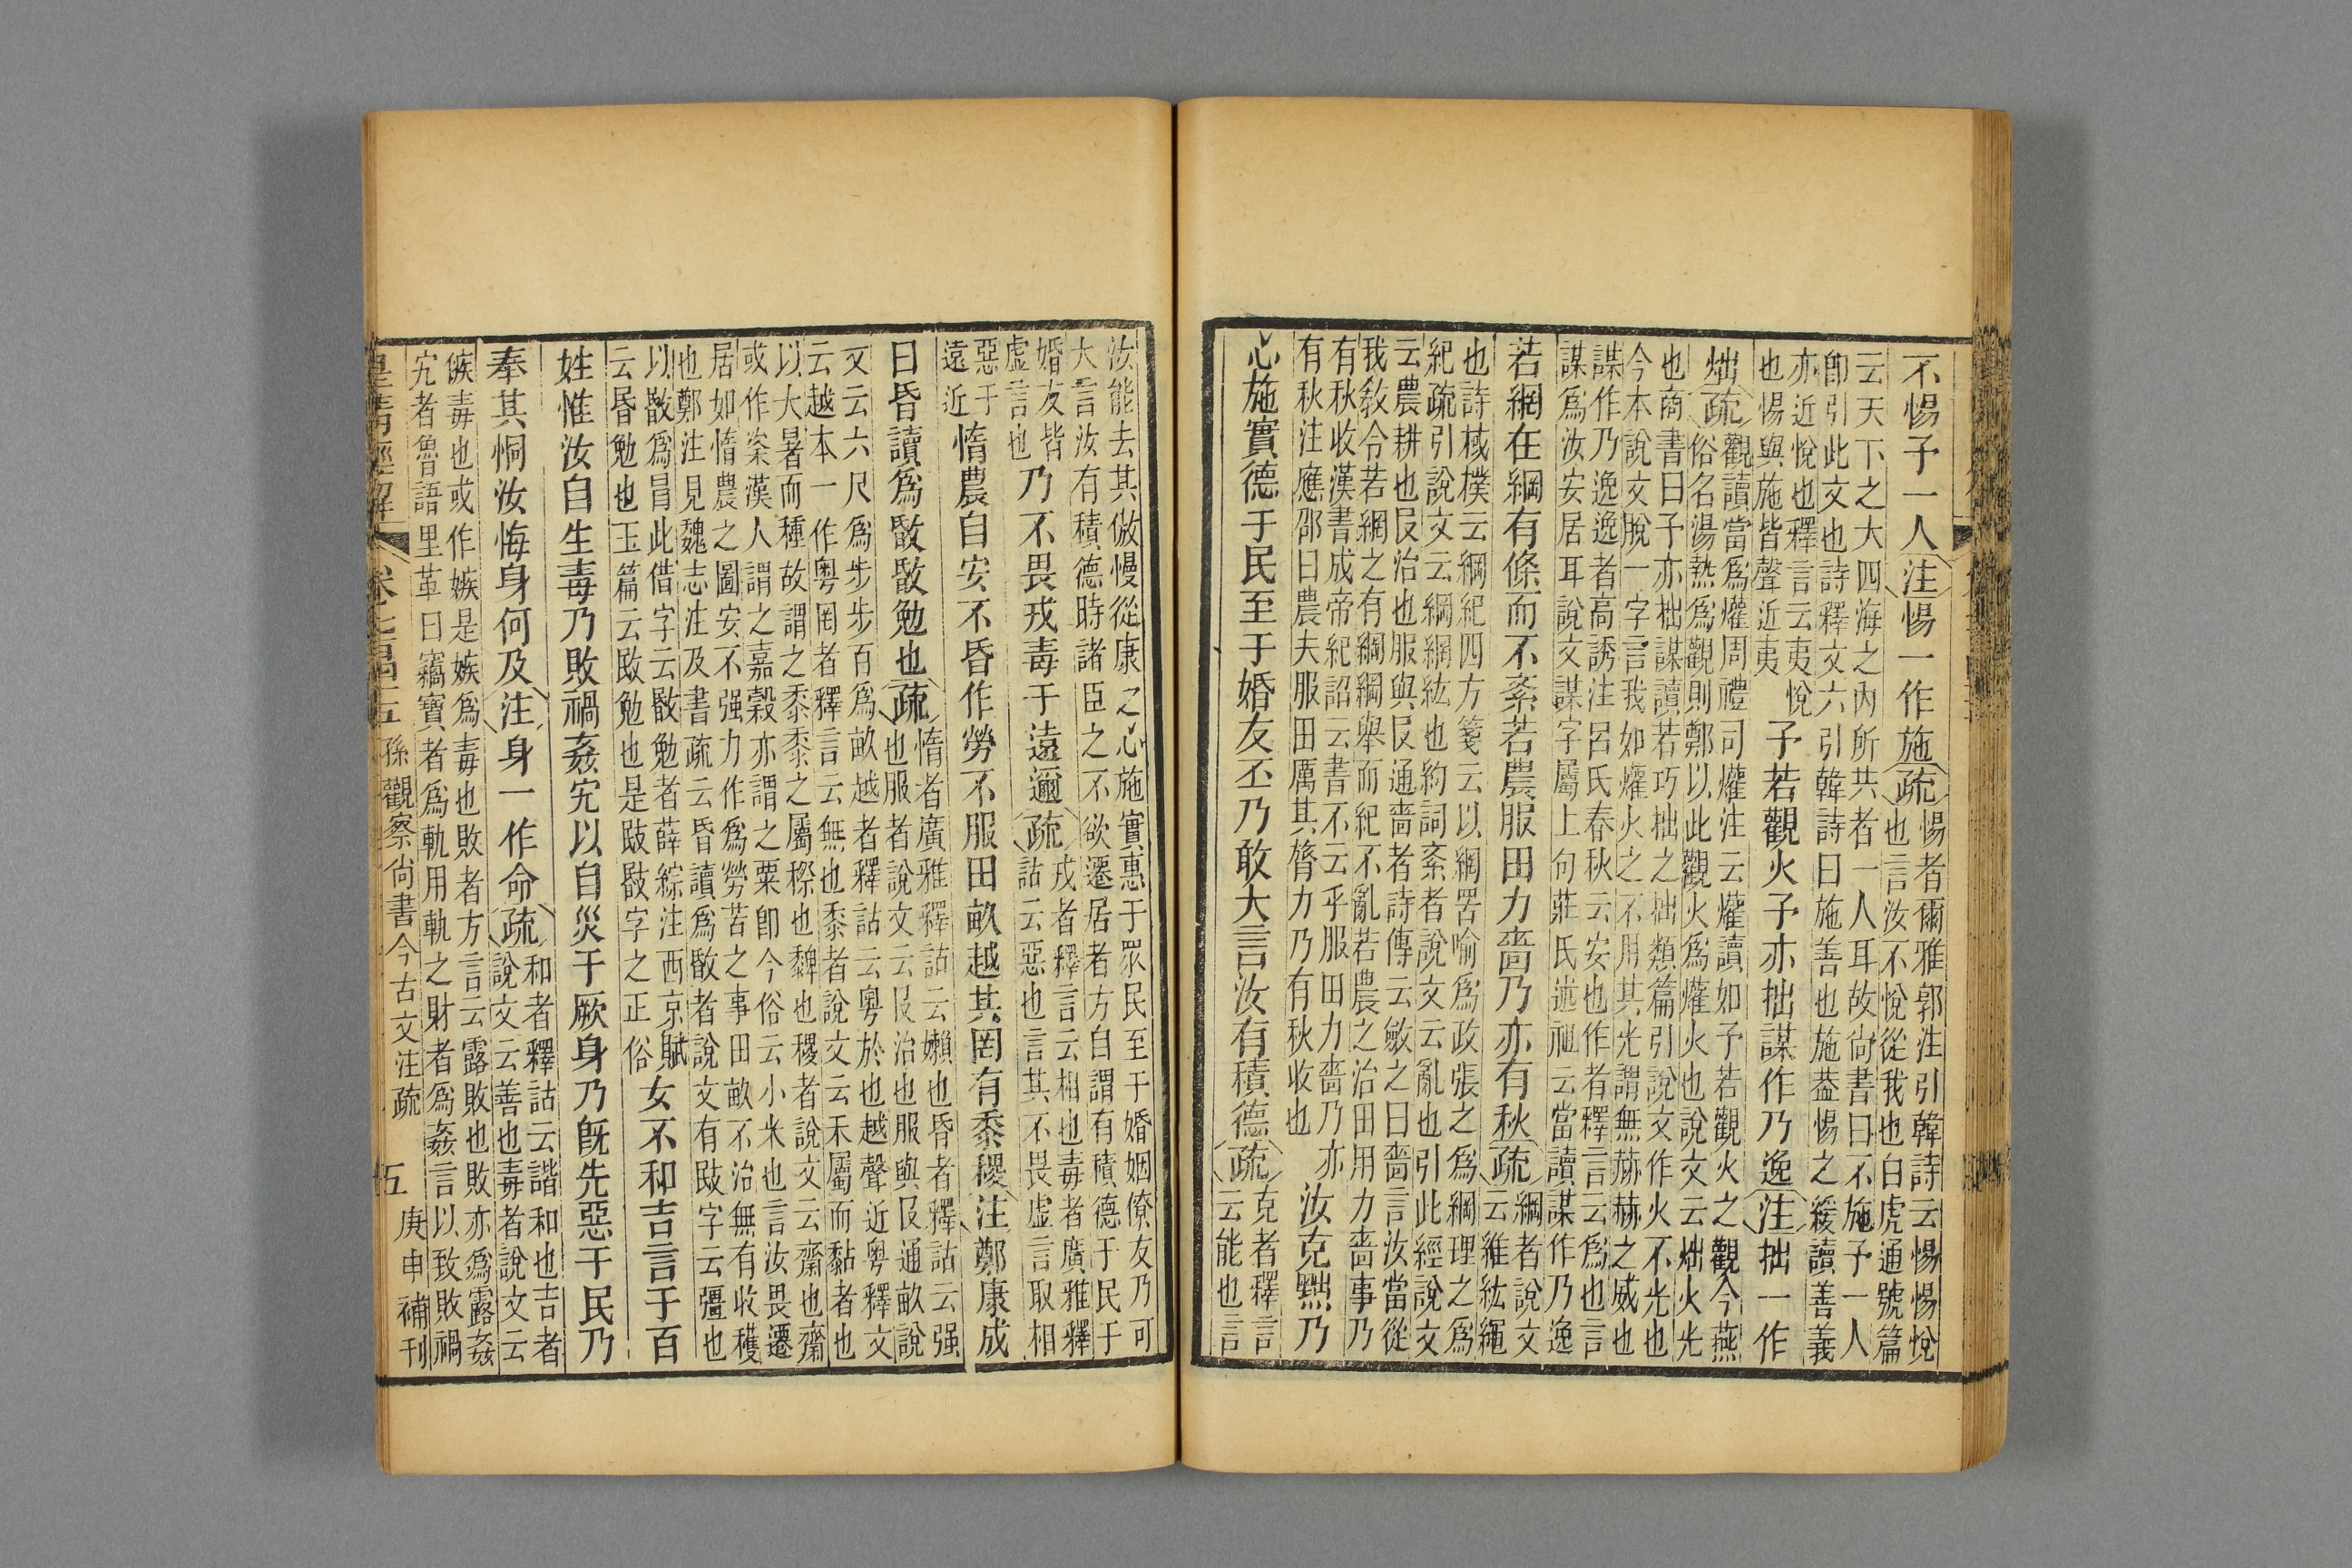 不惕予一人注惕一作施疏惕者爾雅郭注引韓詩云惕惕悅
也言汝不悅從我也白虎通號篇
云天下之大四海之內所共者一人耳故尙書曰不施予一人
卽引此文也詩釋文六引韓詩曰施善也施葢惕之緩讀善義
亦近悅也釋言云夷悅
也惕與施皆聲近夷
予若觀火予亦拙謀作乃逸注拙一作
炪疏觀讀當爲爟周禮司爟注云爟讀如予若觀火之觀今燕
俗名湯熱爲觀則鄭以此觀火爲爟火也說文云炪火光
也商書曰予亦炪謀讀若巧拙之拙類篇引說文作火不光也
今本說文脫一字言我如爟火之不用其光謂無赫赫之威也
謀作乃逸逸者高誘注呂氏春秋云安也作者釋言云爲也言
謀爲汝安居耳說文謀字屬上句莊氏述祖云當讀謀作乃逸
若網在綱有條而不紊若農服田力嗇乃亦有秋疏綱者說文
云維紘繩
也詩棫樸云綱紀四方箋云以網罟喻爲政張之爲綱理之爲
紀疏引說文云綱網紘也約詞紊者說文云亂也引此經說文
云農耕也𠬝治也服與𠬝通嗇者詩傳云斂之曰嗇言汝當從
我敎令若網之有綱綱舉而紀不亂若農之治田用力嗇事乃
有秋收漢書成帝紀詔云書不云乎服田力嗇乃亦
有秋注應邵曰農夫服田厲其膂力乃有秋收也
汝克黜乃
心施實德于民至于婚友丕乃敢大言汝有積德疏克者釋言
云能也言
汝能去其傲慢從康之心施實惠于眾民至于婚姻僚友乃可
大言汝有積德時諸臣之不欲遷居者方自謂有積德于民于
婚友皆
虛言也
乃不畏戎毒于遠邇疏戎者釋言云相也毒者廣雅釋
詁云惡也言其不畏虛言取相
惡于
遠近
惰農自安不昏作勞不服田畝越其罔有黍稷注鄭康成
曰昏讀爲敯敯勉也疏惰者廣雅釋詁云嬾也昏者釋詁云强
也服者說文云𠬝治也服與𠬝通畝說
文云六尺爲步步百爲畝越者釋詁云粵於也越聲近粵釋文
云越本一作粤罔者釋言云無也黍者說文云禾屬而黏者也
以大暑而種故謂之黍黍之屬穄也𪏻也稷者說文云齋也齋
或作粢漢人謂之嘉穀亦謂之粟卽今俗云小米也言汝畏遷
居如惰農之圖安不强力作爲勞苦之事田畝不治無有收穫
也鄭注見魏志注及書疏云昏讀爲敯者說文有敃字云彊也
以敯爲昬此借字云敯勉者薛綜注西京賦
云昬勉也玉篇云敃勉也是敃敯字之正俗
女不和吉言于百
姓惟汝自生毒乃敗禍姦宄以自災于厥身乃旣先惡于民乃
奉其恫汝悔身何及注身一作命疏和者釋詁云諧和也吉者
說文云善也毒者說文云
㾕毒也或作嫉是嫉爲毒也敗者方言云露敗也敗亦爲露姦
宄者魯語里革曰竊寶者爲軌用軌之財者爲姦言以致敗禍
皇淸經解 孫觀察尙書今古文注疏 五 庚申補刊